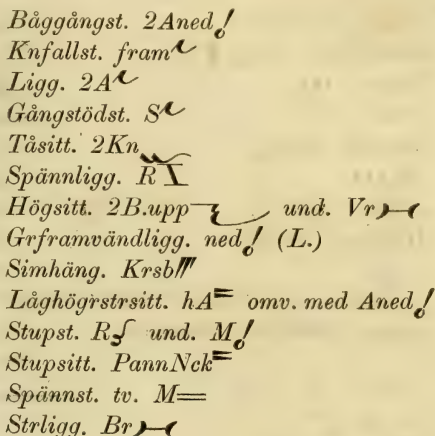 Båggångst. 2Aned
Knfallst. fram
Ligg. 2A
Gångstödst. S
Tåsitt. 2Kn
Spännligg. R
Högsitt. 2B.upp und. Vr
Grframvändligg. ned (L.)
Simhäng. Krsb
Låghögrstrsitt. hA omv. med Aned
Stupst. R und. M
Stupsitt. PannNck
Spännst. tv. M
Strligg. Br